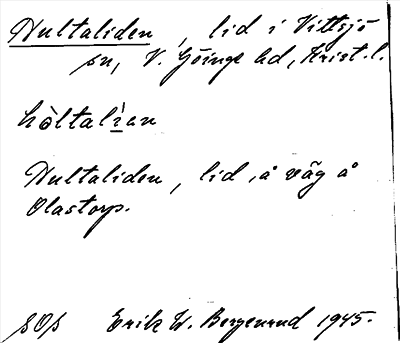 Hultaliden, lid i Vittsjö
sn, V. Göinge hd, Krist. l.
hòltalìan
Hultaliden, lid, å väg å
Olastorp.
SOS Erik W. Bergenrud 1945.